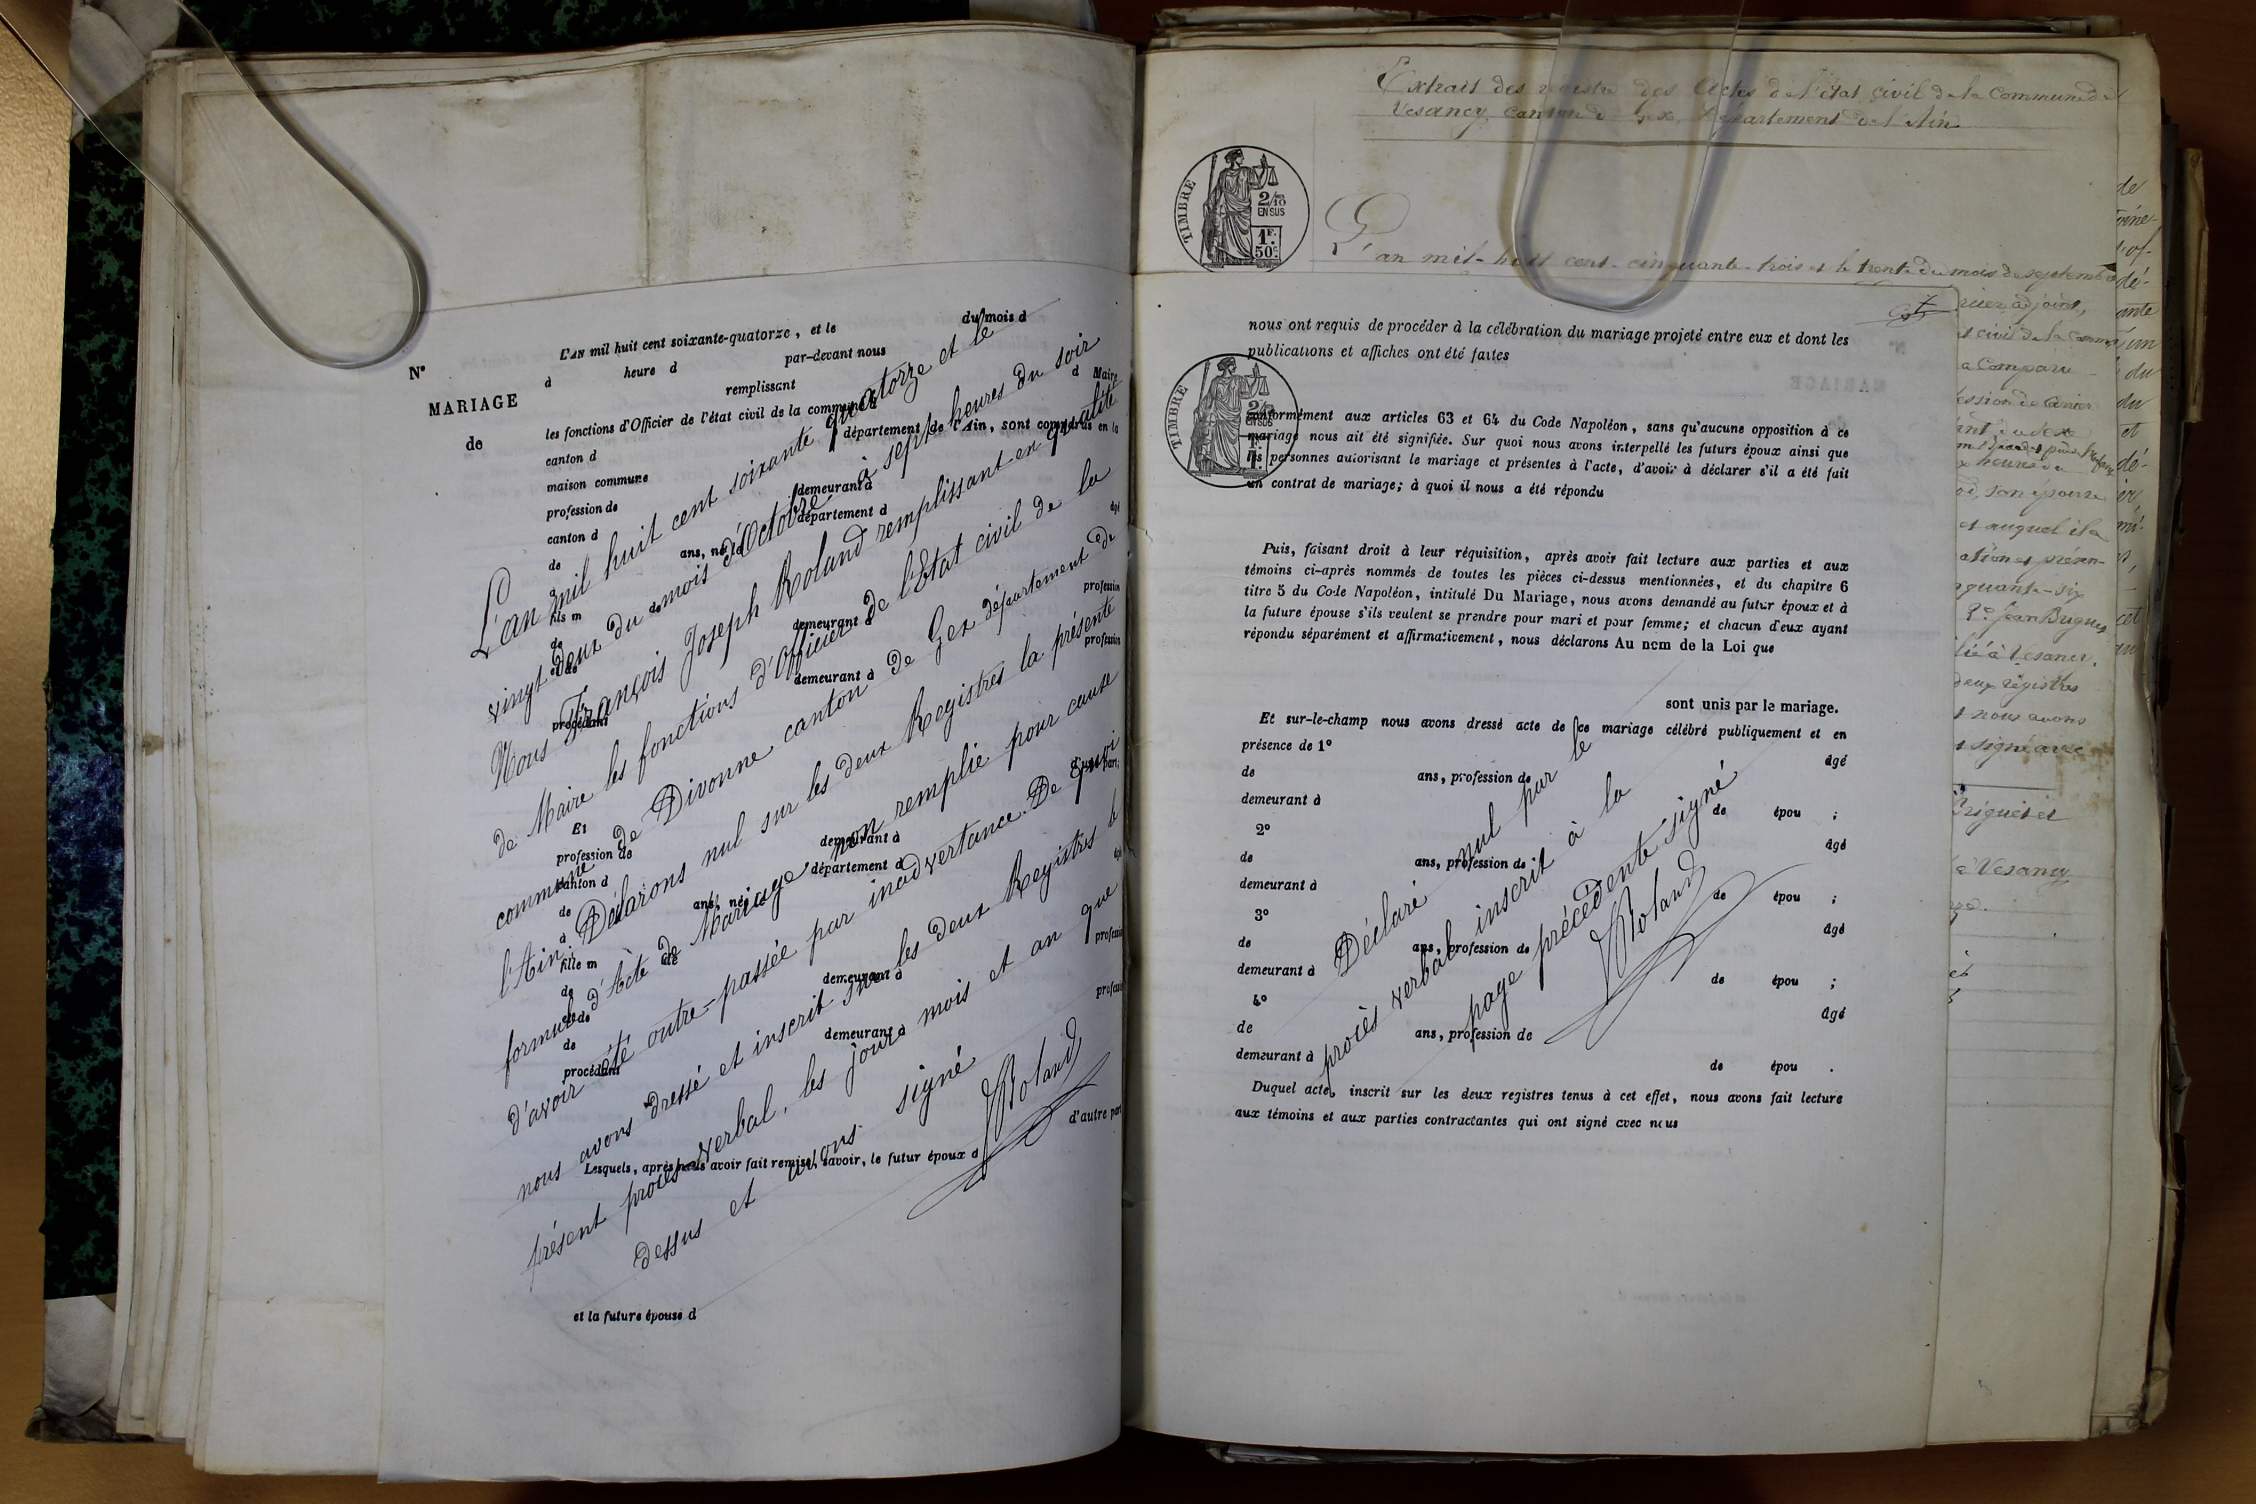 L'AN mil huit cent soixante-quatorze, et le du mois d
N° d heure d par-devant nous
MARIAGE remplissant d Maire
de les fonctions d'Officier de l'état civil de la commune
canton d département de l'Ain, sont comparus en la
maison commune
profession de demeurant à
canton d département d âgé
de ans, né à
d
fils m de profession
de demeurant à
et de profession
de demeurant à
procédant
d'une part;
Et
profession de demeurant à
canton d département d
de ans, née à âgé
d
fille m de profession
de demeurant à
et de profession
de demeurant à
procédant
d'autre part
Lesquels, après nous avoir fait remise, savoir, le futur époux d
et la future épouse d
L'an mil huit cent soixante quatorze et le
vingt deux du mois d'Octobre à sept heures du soir
Nous François Joseph Roland remplissant en qualité
de Maire les fonctions d'Officier de l'Etat civil de la
commune de Divonne canton de Gex département de
l'Ain, Déclarons nul sur les deux Registres la présente
formule d'Acte de Mariage non remplie pour cause
d'avoir été outre-passée par inadvertance. De quoi
nous avons dressé et inscrit sur les deux Registres le
présent procès-verbal, les jour mois et an que
dessus et avons signé
Roland
Extrait des registre des Actes de l'état civil de la commune de
Vesancy canton de Gex, Département de l'Ain
TIMBRE
2/10
EN SUS
1F.
50c.
L'an mil-huit cent-cinquante-trois et le trente du mois de septembre
nous ont requis de procéder à la célébration du mariage projeté entre eux et dont les
publications et affiches ont été faites
TIMBRE
2/10
EN SUS
1F.
conformément aux articles 63 et 64 du Code Napoléon, sans qu'aucune opposition à ce
mariage nous ait été signifiée. Sur quoi nous avons interpellé les futurs époux ainsi que
les personnes autorisant le mariage et présentes à l'acte, d'avoir à déclarer s'il a été fait
un contrat de mariage; à quoi il nous a été répondu
Puis, faisant droit à leur réquisition, après avoir fait lecture aux parties et aux
témoins ci-après nommés de toutes les pièces ci-dessus mentionnées, et du chapitre 6
titre 5 du Code Napoléon, intitulé Du Mariage, nous avons demandé au futur époux et à
la future épouse s'ils veulent se prendre pour mari et pour femme; et chacun d'eux ayant
répondu séparément et affirmativement, nous déclarons Au nom de la Loi que
sont unis par le mariage.
Et sur-le-champ nous avons dressé acte de ce mariage célébré publiquement et en
présence de 1° âgé
de ans, profession de
demeurant à de épou ;
2° âgé
de ans, profession de
demeurant à de épou ;
3° âgé
de ans, profession de
demeurant à de épou ;
4° âgé
de ans, profession de
demeurant à de épou .
Duquel acte, inscrit sur les deux registres tenus à cet effet, nous avons fait lecture
aux témoins et aux parties contractantes qui ont signé avec nous
Déclaré nul par le
procès verbal inscrit à la
page précédente signé
Roland
adjoint,
civil de la
a Comparu
son épouse
et auquel il a
quante-six
Jean
à Vesancy.
deux registres
nous avons
signé avec
à Vesancy
de
dé-
du
du
et
dé-
cet